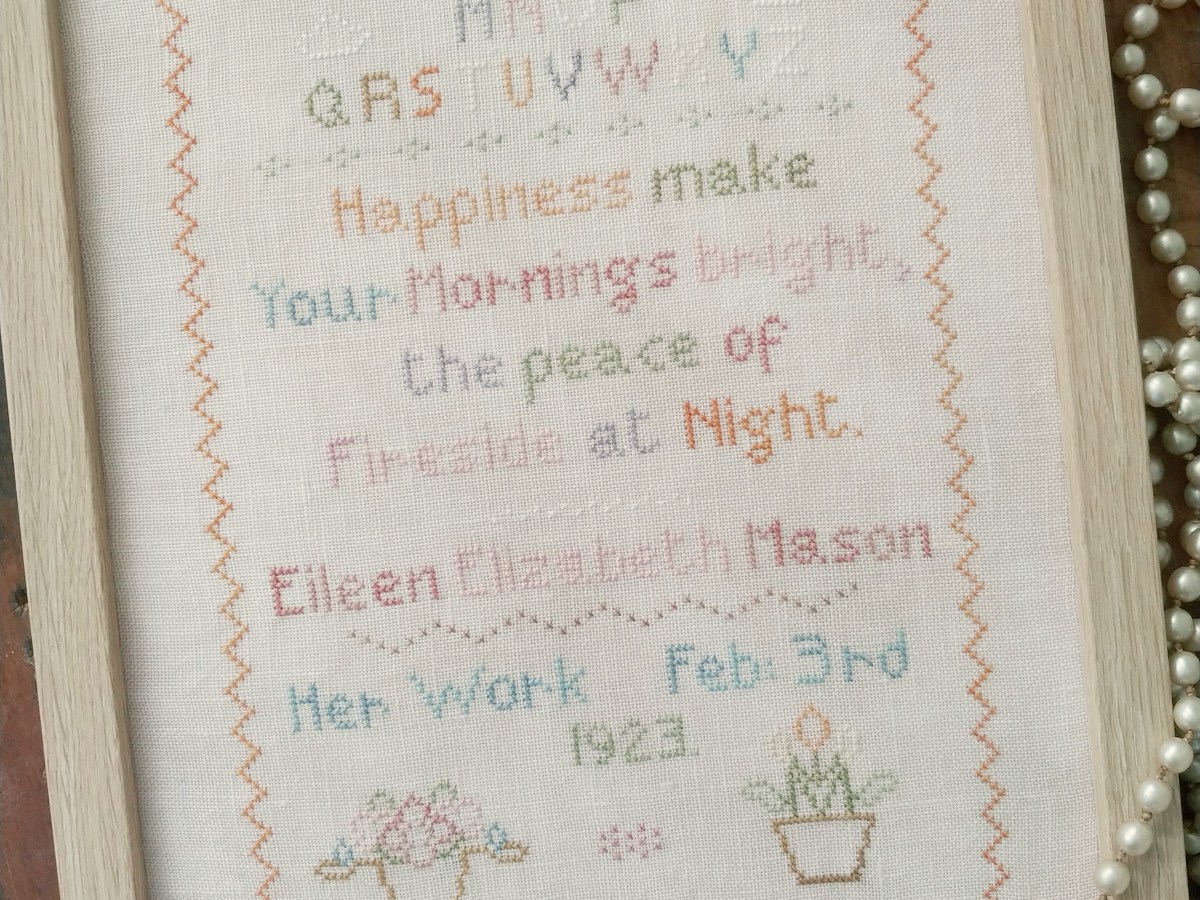 Q R S T U V W X Y Z
Happiness make
Your Mornings bright,
the peace of
Fireside at Night.
Eileen Elizabeth Mason
Her Work Feb: 3rd
1923.